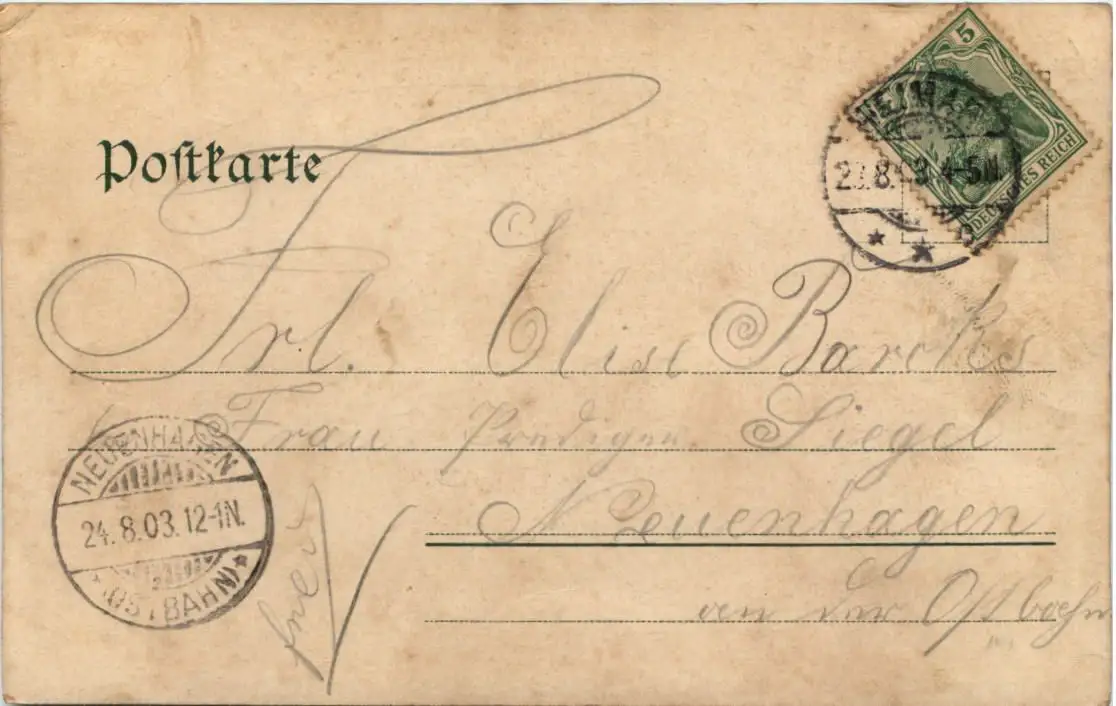 Postkarte
5
DEUTSCHES REICH
WEIMAR
23.8.03 4-5N.
Frl. Elise Bartels
Frau Prediger Siegel
Neuenhagen
an der Ostbahn
NEUENHAGEN
24.8.03.12-1N.
(OSTBAHN)
frei